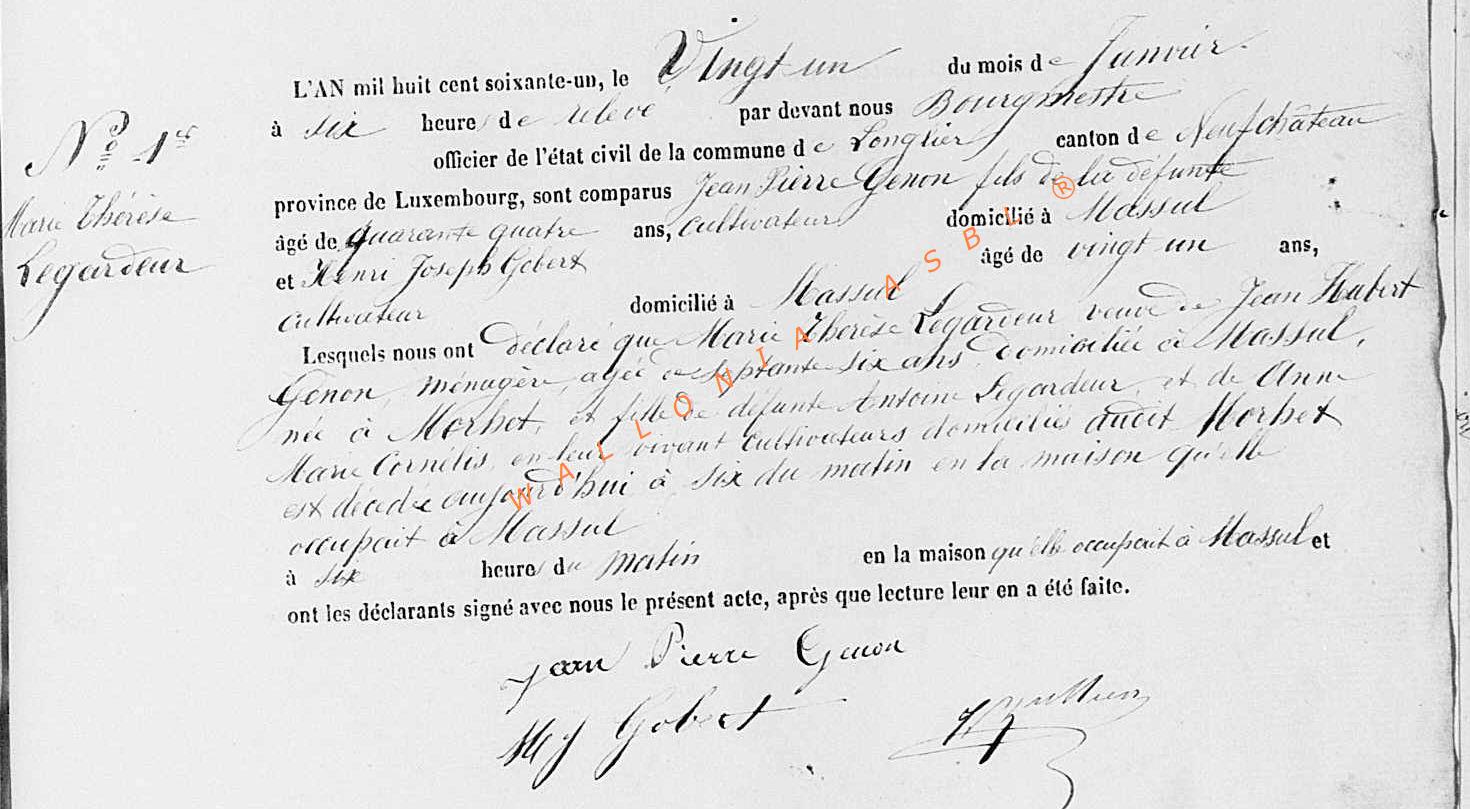 L'AN mil huit cent soixante-un, le Vingt un du mois de Janvier.
à six heures de relevé par devant nous Bourgmestre
officier de l'état civil de la commune de Longlier canton de Neufchâteau
province de Luxembourg, sont comparus Jean Pierre Genon fils de la défunte
âgé de quarante quatre ans, cultivateur domicilié à Massul
et Henri Joseph Gobert âgé de vingt un ans,
cultivateur domicilié à Massul
Lesquels nous ont déclaré que Marie Thérèse Legardeur veuve de Jean Hubert
Genon, ménagère, agée de septante six ans, domiciliée à Massul,
née à Morhet, et fille de défunts Antoine Legardeur, et de Anne
Marie Cornélis, en leur vivant cultivateurs domiciliés audit Morhet
est décédée aujourd'hui à six du matin en la maison qu'elle
occupait à Massul
à six heures du matin en la maison qu'elle occupait à Massul et
ont les déclarants signé avec nous le présent acte, après que lecture leur en a été faite.
Jean Pierre Genon
H J Gobert
No 1er
Marie Thérèse
Legardeur
WALLONIA ASBL ®